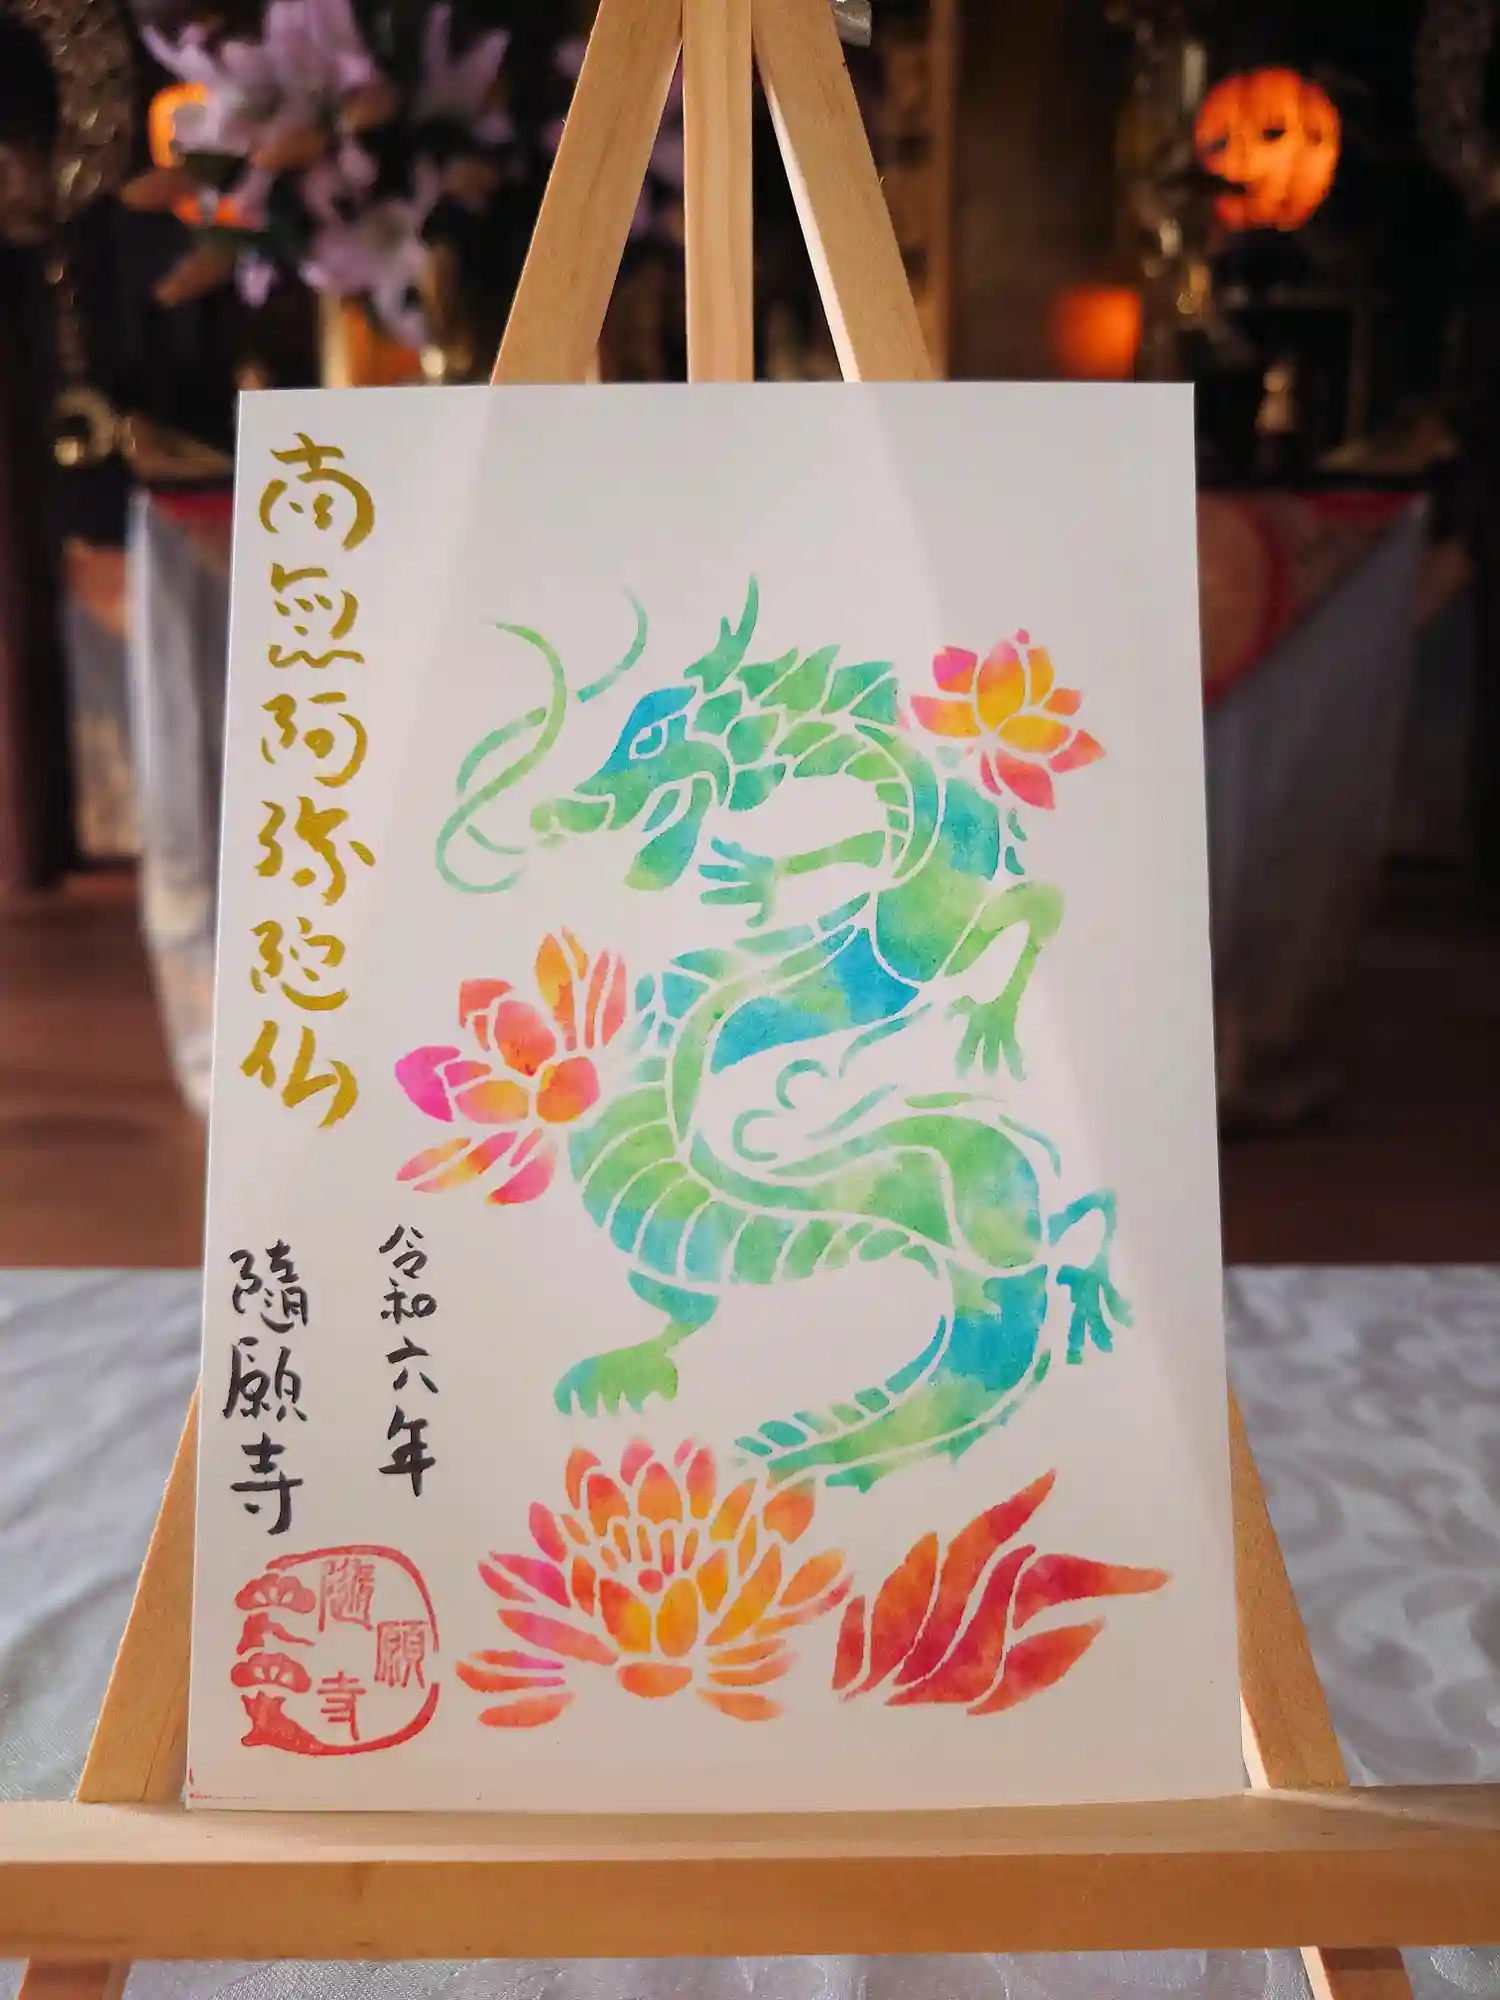 南無阿弥陀仏
令和六年
隨願寺
隨願寺